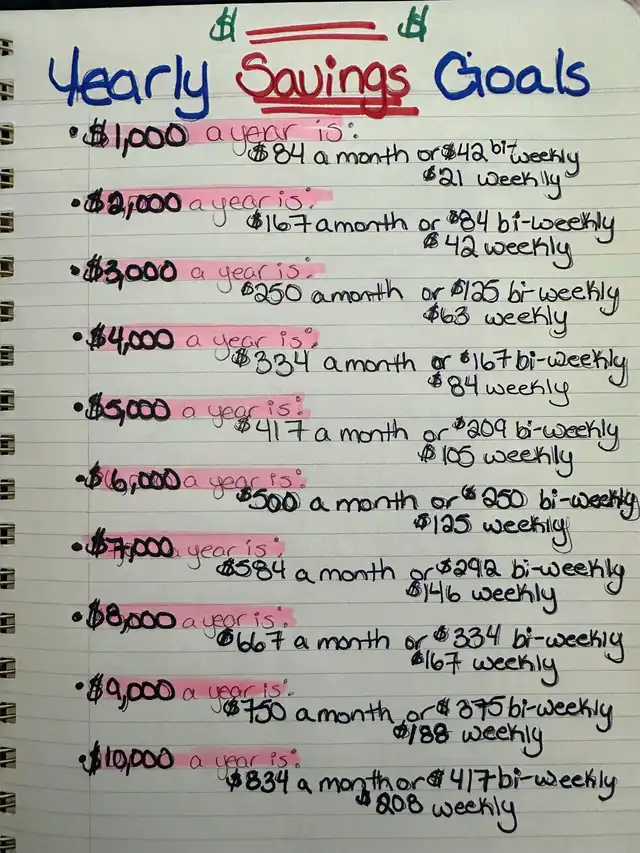 $ $
Yearly Savings Goals
• $1,000 a year is:
$84 a month or $42 bi-weekly
$21 weekly
• $2,000 a year is:
$167 a month or $84 bi-weekly
$42 weekly
• $3,000 a year is:
$250 a month or $125 bi-weekly
$63 weekly
• $4,000 a year is:
$334 a month or $167 bi-weekly
$84 weekly
• $5,000 a year is:
$417 a month or $209 bi-weekly
$105 weekly
• $6,000 a year is:
$500 a month or $250 bi-weekly
$125 weekly
• $7,000 a year is:
$584 a month or $292 bi-weekly
$146 weekly
• $8,000 a year is:
$667 a month or $334 bi-weekly
$167 weekly
• $9,000 a year is:
$750 a month or $375 bi-weekly
$188 weekly
• $10,000 a year is:
$834 a month or $417 bi-weekly
$208 weekly